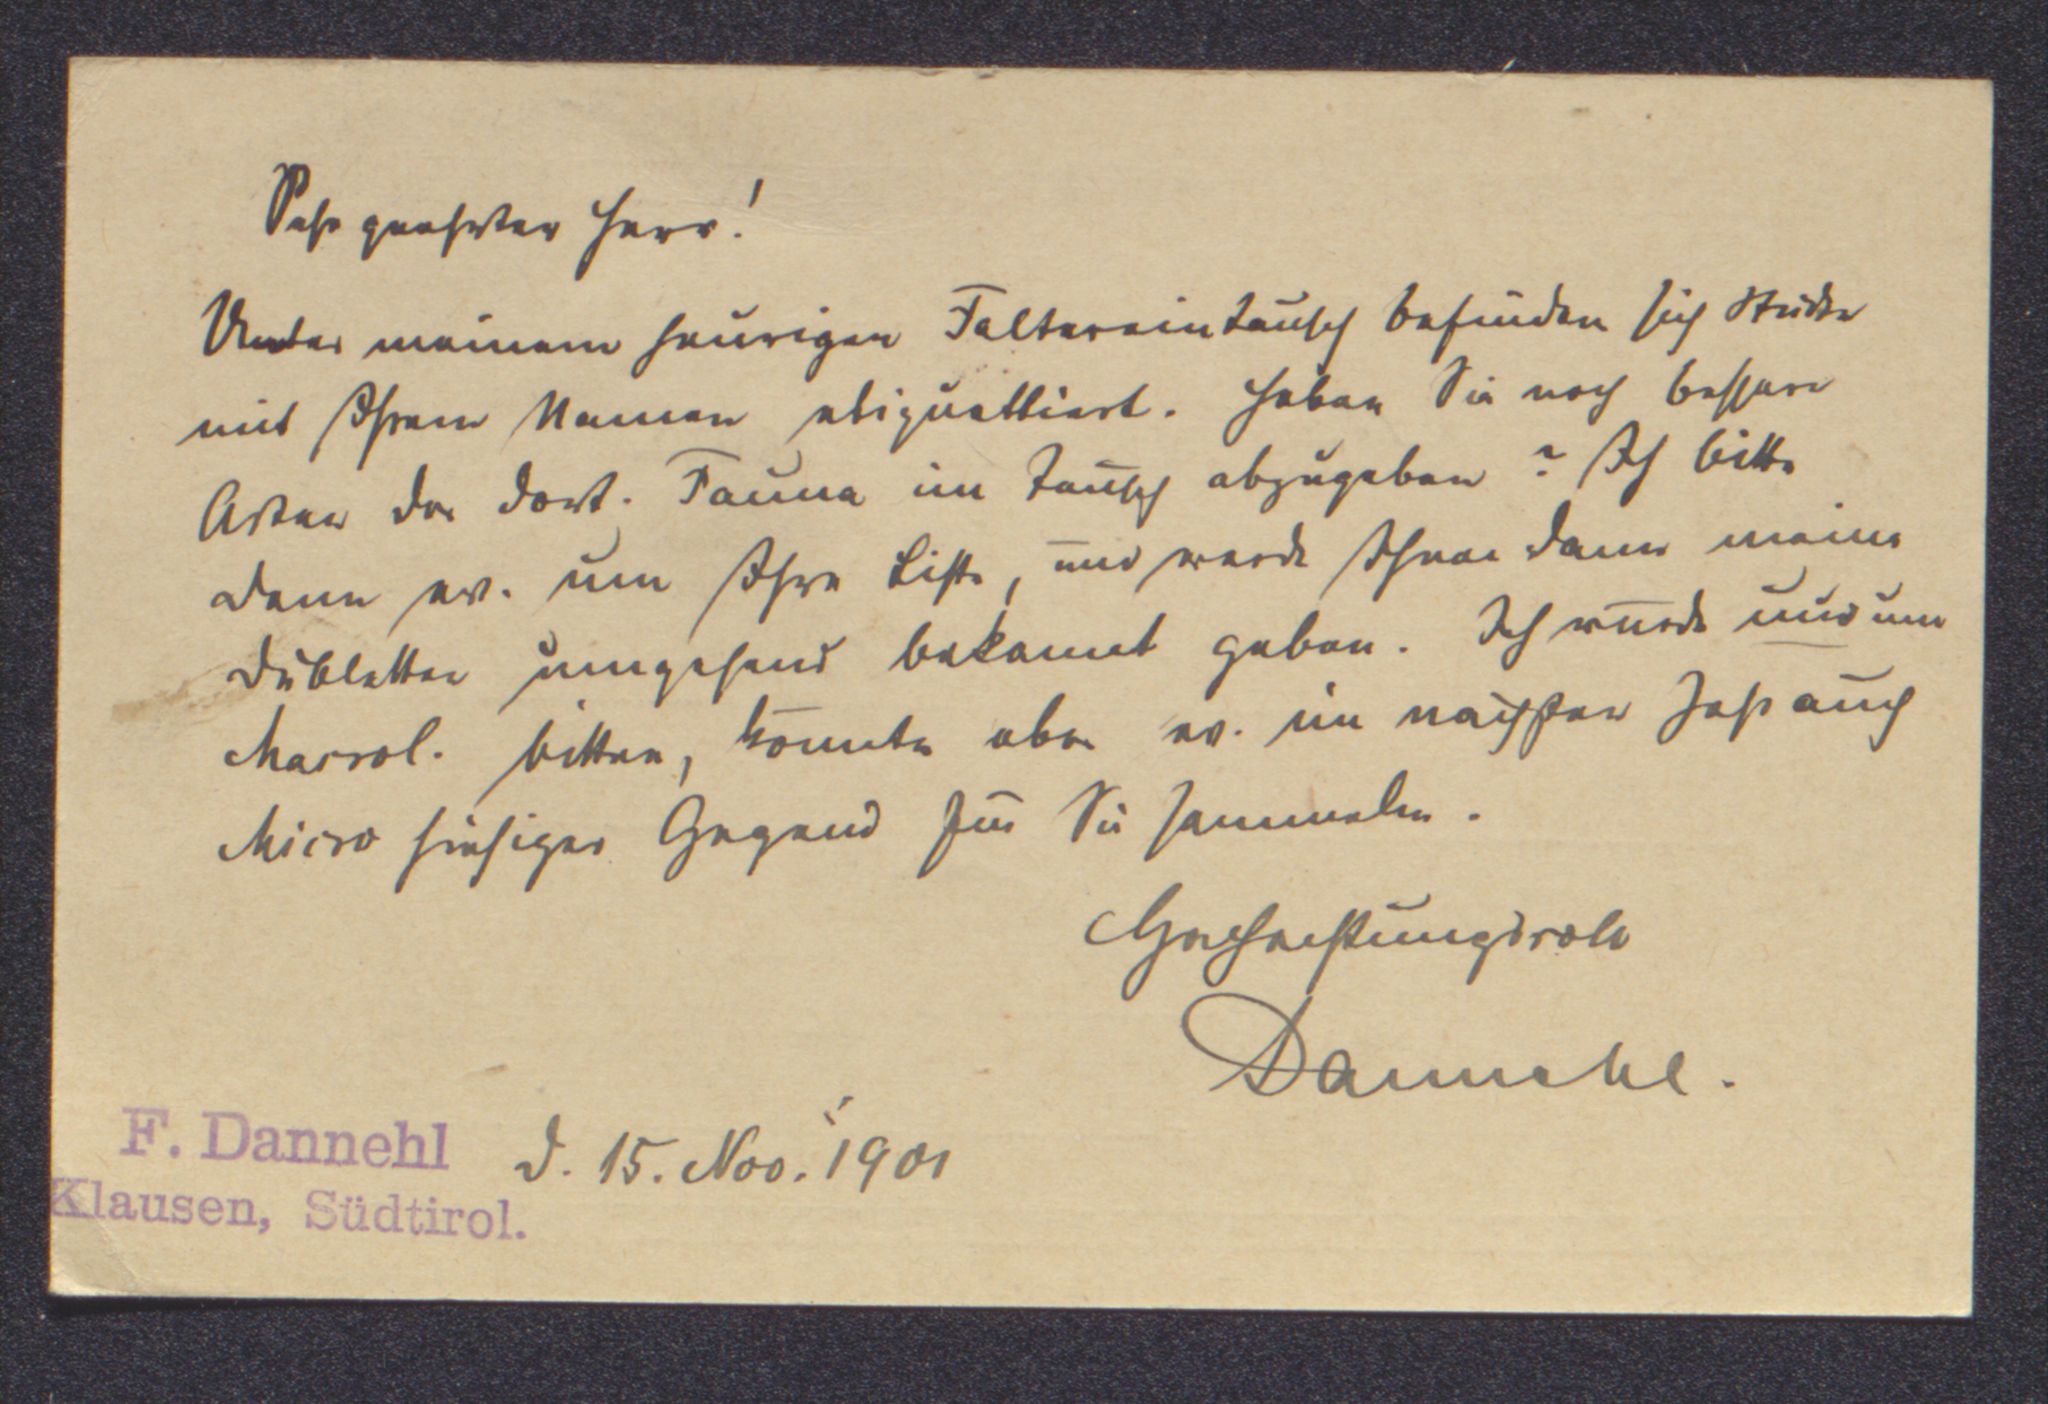 Sehr geehrter Herr!
Unter meinem heurigen Faltereintausch befinden sich Stücke
mit Ihrem Namen etiquettiert. Haben Sie noch bessere
Arten der dort. Fauna im Tausch abzugeben? Ich bitte
dann ev. um Ihre Liste, und werde Ihnen dann meine
Dubletten umgehend bekannt geben. Ich würde nur um
Macrol. bitten, könnte aber ev. im nächsten Jahr auch
Micro hiesiger Gegend für Sie sammeln.
Hochachtungsvoll
Dannehl.
F. Dannehl
Klausen, Südtirol.
d. 15. Nov. 1901